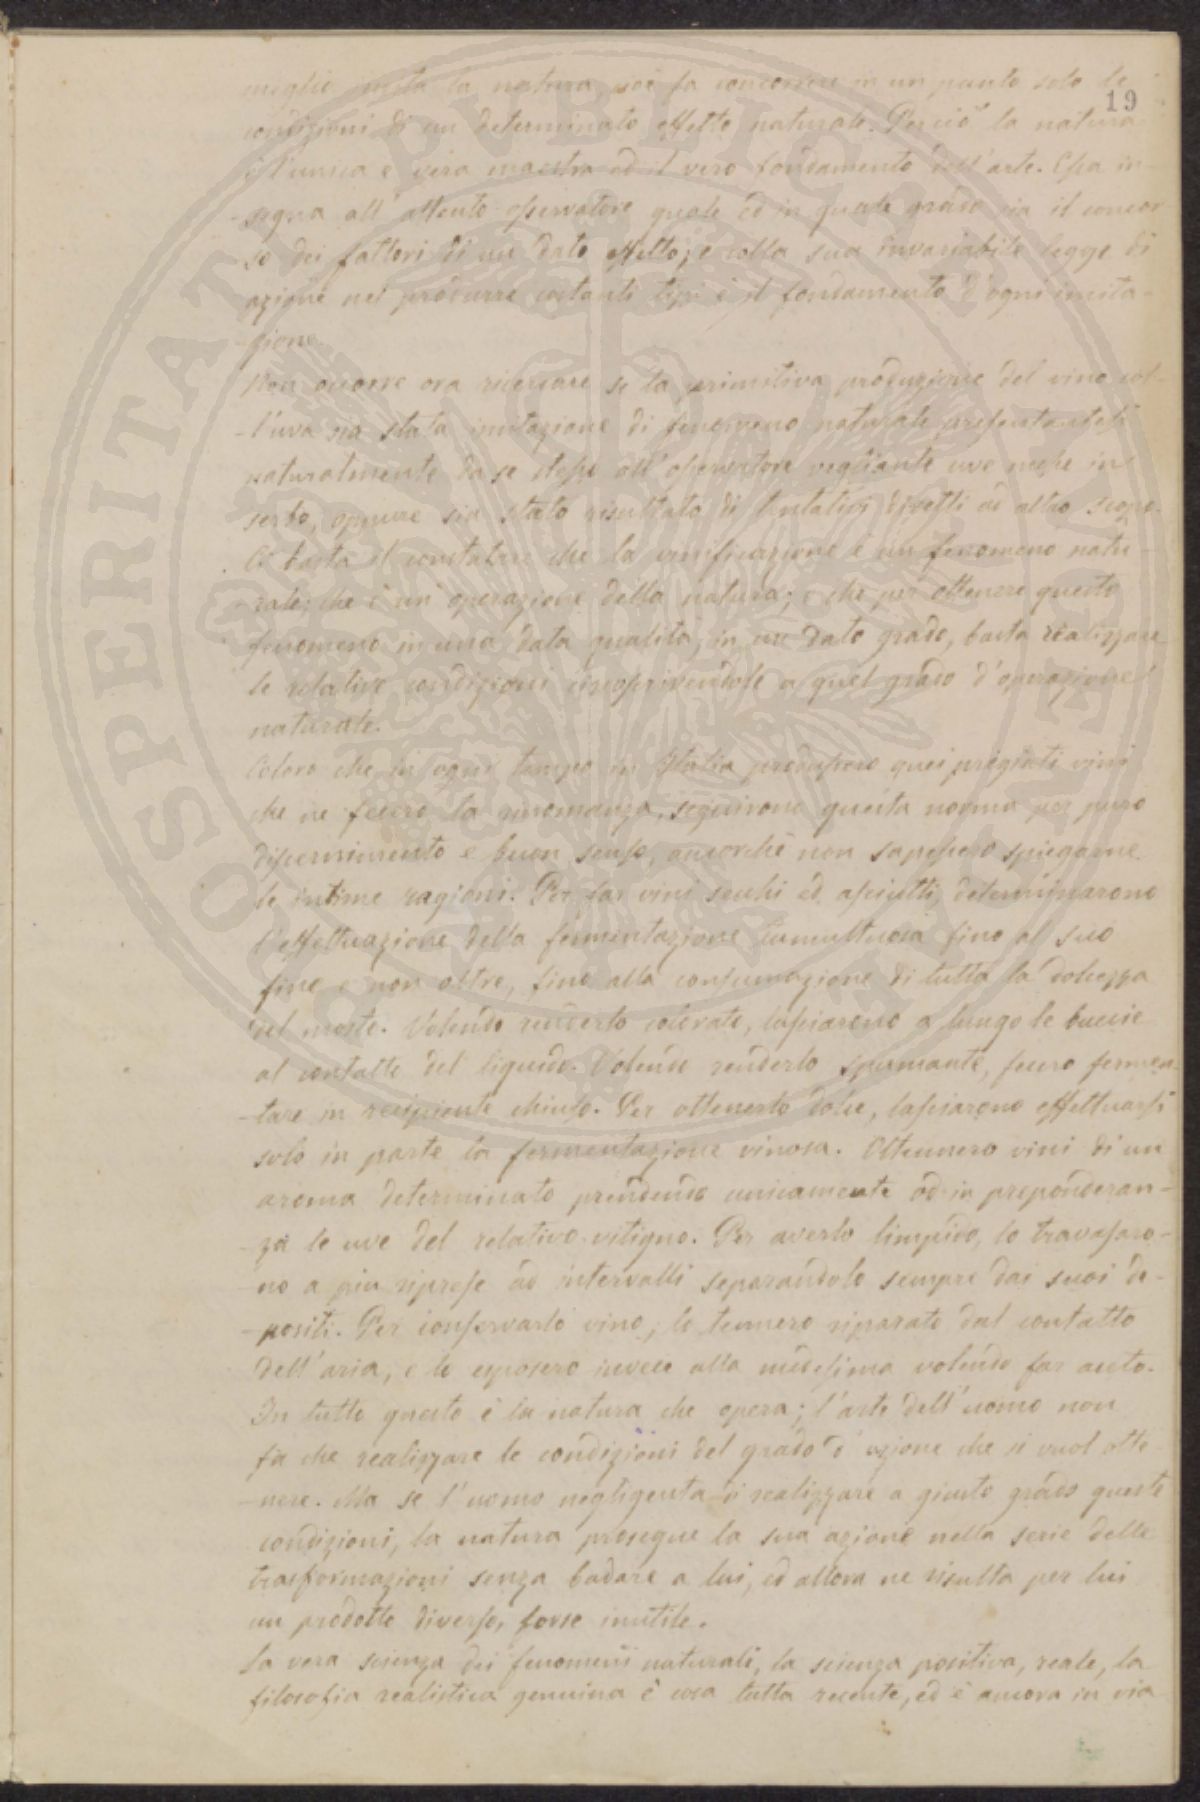 19
meglio imita la natura noi fa concorrere in un punto solo le
condizioni di un determinato effetto naturale. Perciò la natura
è l'unica e vera maestra ed il vero fondamento dell'arte. Essa in-
-segna all'attento osservatore quale ed in quale grado sia il concor
so dei fattori di un dato effetto; e colla sua invariabile legge di
azione nel produrre costanti tipi è il fondamento d'ogni imita-
-zione.
Non occorre ora ricercare se la primitiva produzione del vino col-
-l'uva sia stata imitazione di fenomeno naturale presentantesi
naturalmente da se stesso all'osservatore vegliante uve messe in
serbo, oppure sia stato risultato di tentativi diretti ad altro scopo.
Ci basta il constatare che la vinificazione è un fenomeno natu-
-rale; che è un'operazione della natura; e che per ottenere questo
fenomeno in una data qualità, in un dato grado, basta realizzare
le relative condizioni circoscrivendole a quel grado d'operazione
naturale.
Coloro che in ogni tempo in Italia produssero quei pregiati vini
che ne fecero la rinomanza, seguirono questa norma per puro
discernimento e buon senso, ancorchè non sapessero spiegarne
le intime ragioni. Per far vini secchi ed asciutti, determinarono
l'effettuazione della fermentazione tumultuosa fino al suo
fine e non oltre, fino alla consumazione di tutta la dolcezza
del mosto. Volendo renderlo colorato, lasciarono a lungo le buccie
al contatto del liquido. Volendo renderlo spumante, fecero fermen-
-tare in recipiente chiuso. Per ottenerlo dolce, lasciarono effettuarsi
solo in parte la fermentazione vinosa. Ottennero vini di un
aroma determinato prendendo unicamente od in preponderan-
-za le uve del relativo vitigno. Per averlo limpido, lo travasaro-
-no a più riprese ad intervalli separandolo sempre dai suoi de-
-positi. Per conservarlo vino, lo tennero riparato dal contatto
dell'aria, e lo esposero invece alla medesima volendo far aceto.
In tutto questo è la natura che opera; l'arte dell'uomo non
fa che realizzare le condizioni del grado d'azione che si vuol otte
-nere. Ma se l'uomo negligenta di realizzare a giusto grado queste
condizioni, la natura prosegue la sua azione nella serie delle
trasformazioni senza badare a lui, ed allora ne risulta per lui
un prodotto diverso, forse inutile.
La vera scienza dei fenomeni naturali, la scienza positiva, reale, la
filosofia realistica genuina è cosa tutta recente, ed è ancora in via
PROSPERITATI PUBLICAE AUGENDAE